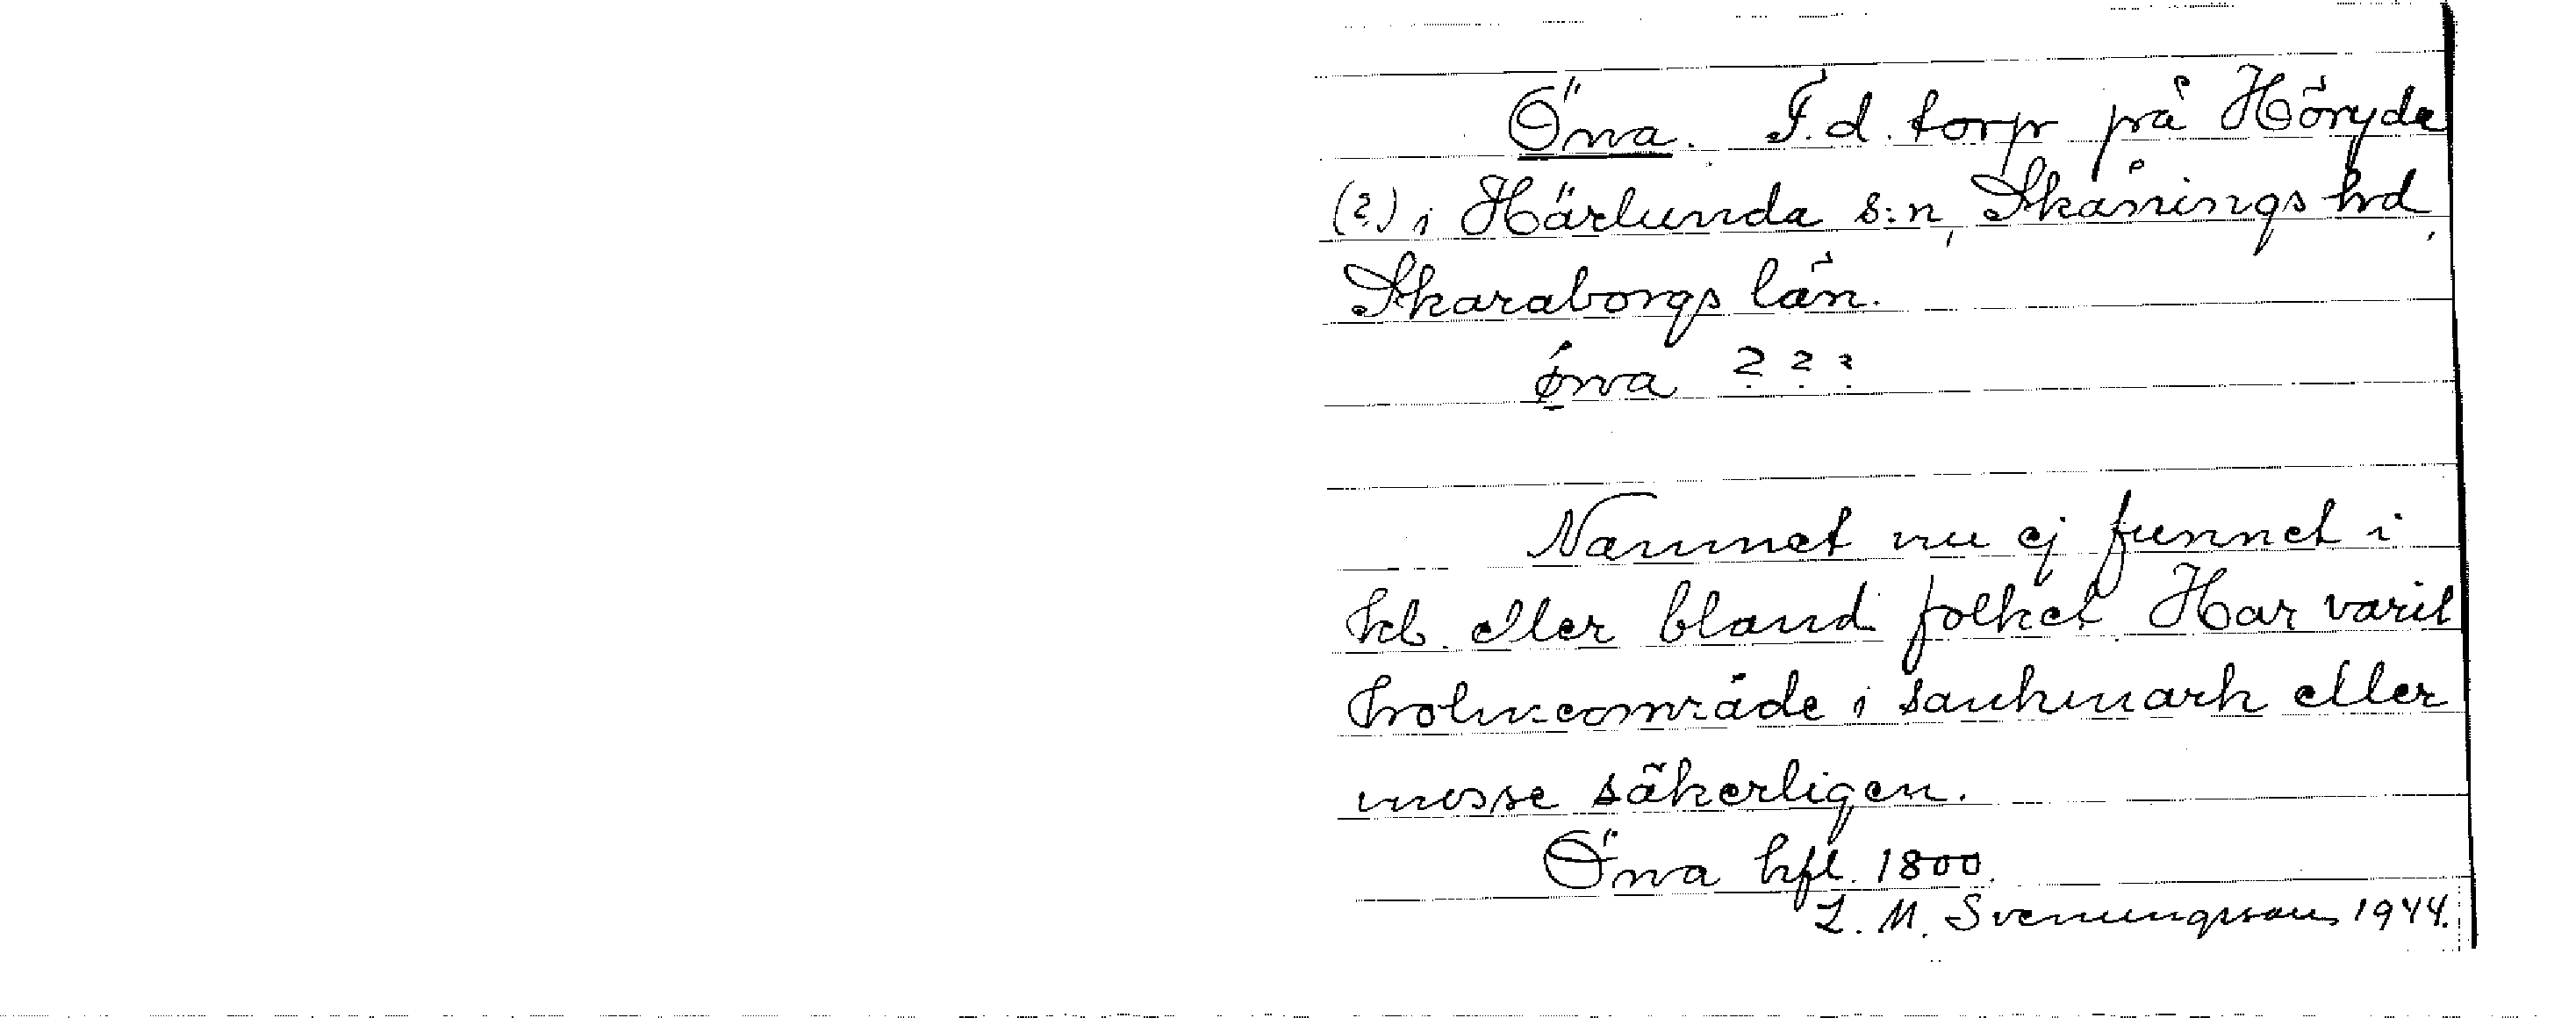 Öna. F.d. torp på Höryda
(?) i Härlunda s:n, Skånings hd,
Skaraborgs län.
ǿna ? ? ?
Namnet nu ej funnet i
kb. eller bland folket. Har varit
holmeområde i sankmark eller
mosse säkerligen.
Öna hfl. 1800.
L. M. Svenungsson 1944.